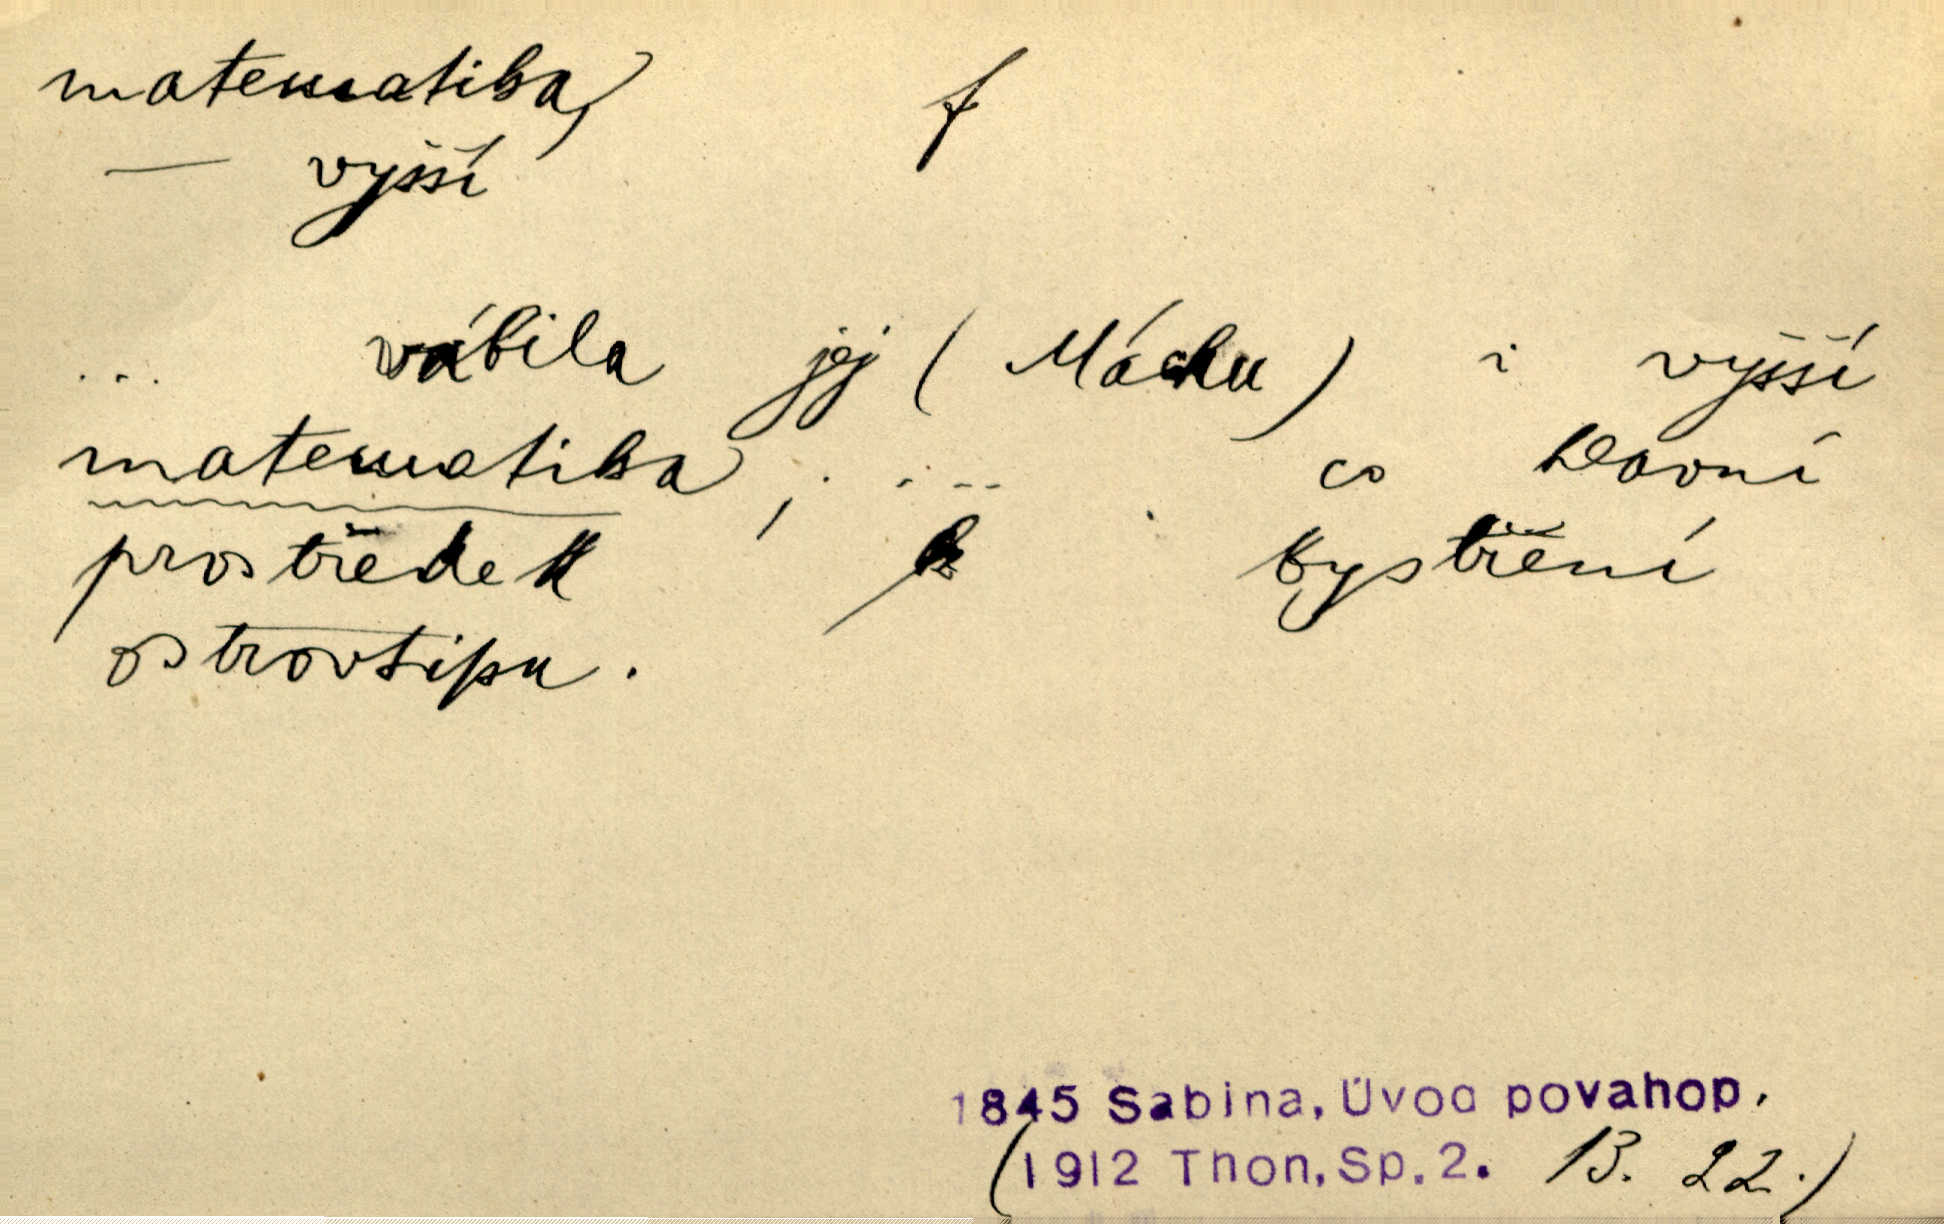 matematika, f
— vyšší
... vábila jej (Máchu) i vyšší
matematika, ... co hlavní
prostředek k bystření
ostrovtipu.
1845 Sabina, Úvod povahop.
(1912 Thon, Sp. 2. 13. 22.)